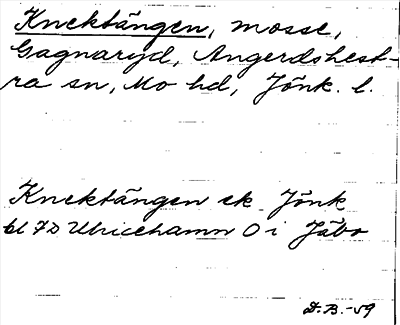 Knektängen, mosse,
Gagnaryd, Angerdshest-
ra sn, Mo hd, Jönk. l.
Knektängen ek Jönk
bl 7D Ulricehamn O i Jäbo
D.B.-59